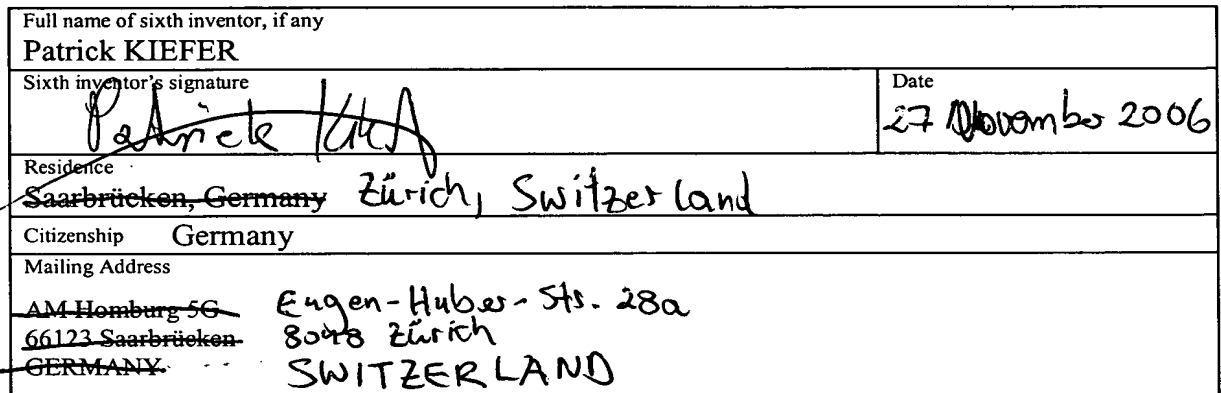 Full name of sixth inventor, if any
Patrick KIEFER
Sixth inventor's signature
Patrick
Date
27 November 2006
Residence
Saarbrücken, Germany Zürich, Switzerland
Citizenship Germany
Mailing Address
AM Homburg 5G Eugen-Huber-Str. 28a
66123 Saarbrücken 8048 Zürich
GERMANY SWITZERLAND